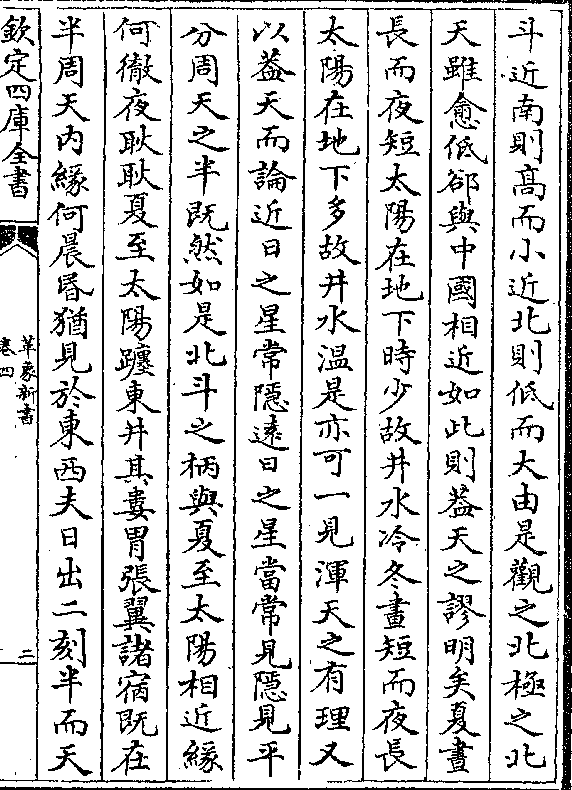 斗近南則髙而小近北則低而大由是觀之北極之北
天雖愈低郤與中國相近如此則葢天之謬明矣夏晝
長而夜短太陽在地下時少故井水冷冬晝短而夜長
太陽在地下多故井水温是亦可一見渾天之有理又
以葢天而論近日之星常隱逺日之星當常見隱見平
分周天之半既然如是北斗之柄與夏至太陽相近緣
何徹夜耿耿夏至太陽躔東井其婁胃張翼諸宿既在
半周天内緣何晨昬猶見於東西夫日出二刻半而天
欽定四庫全書
革象新書
卷四
二